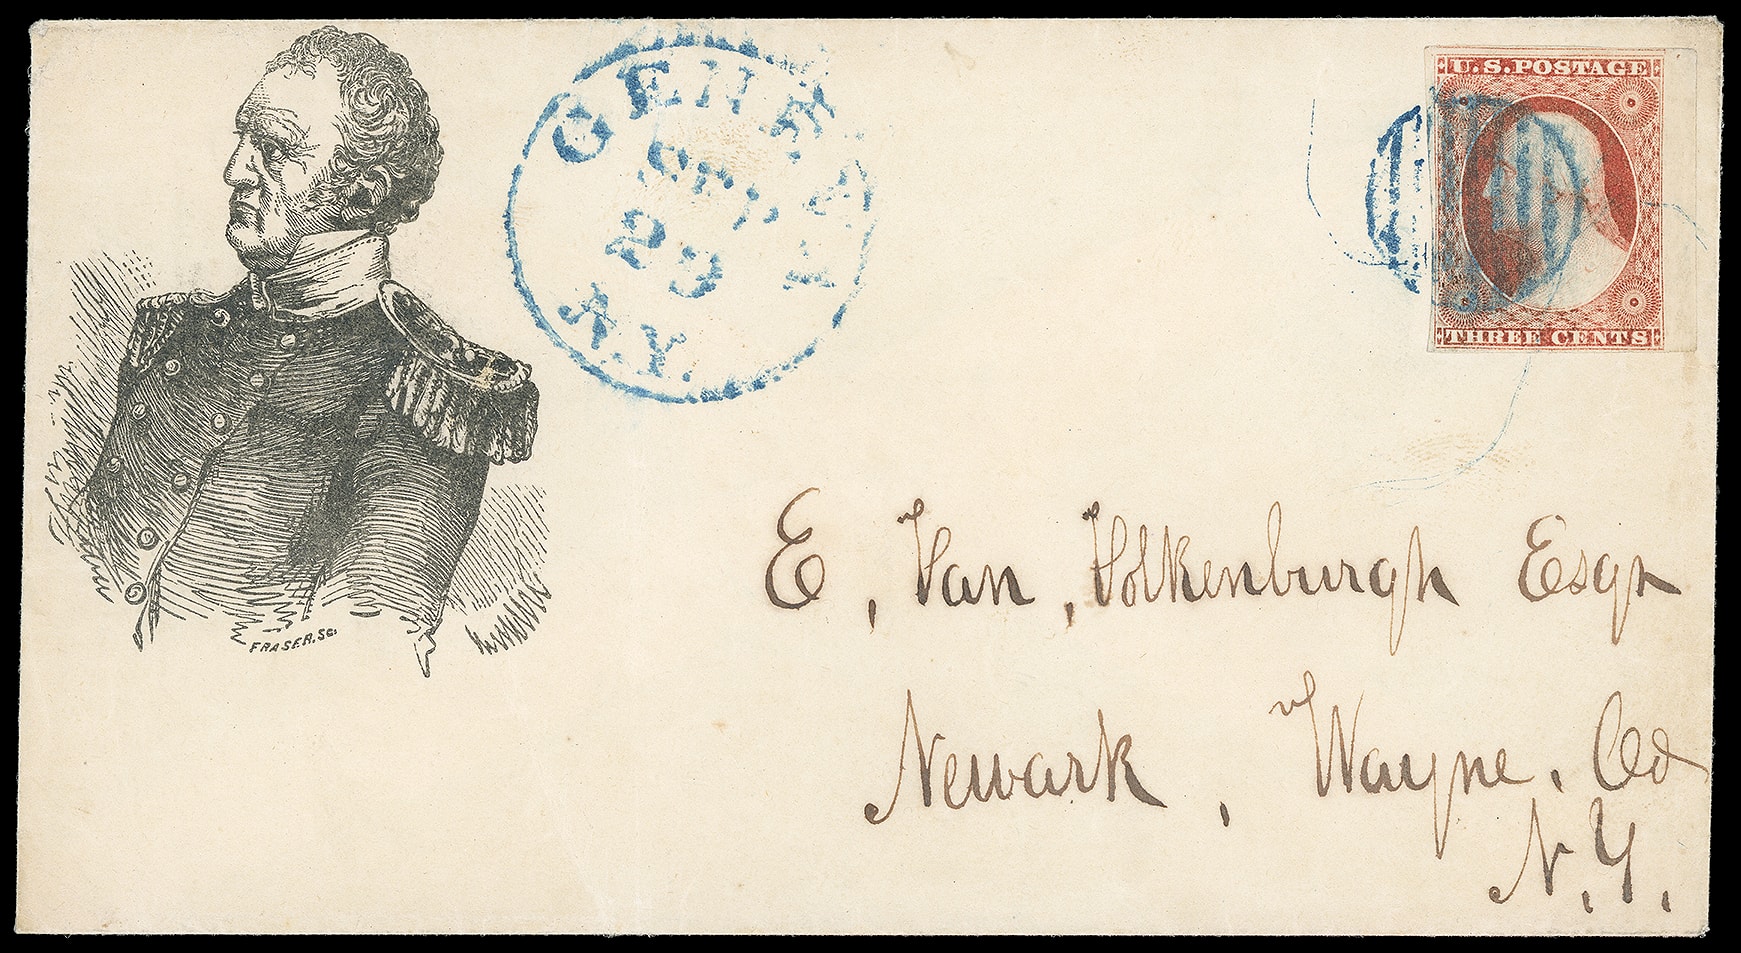 GENEVA
SEP
23
N.Y.
U.S. POSTAGE
THREE CENTS
FRASER. SC.
E, Van, Volkenburgh Esqr
Newark, Wayne, Co
N.Y.